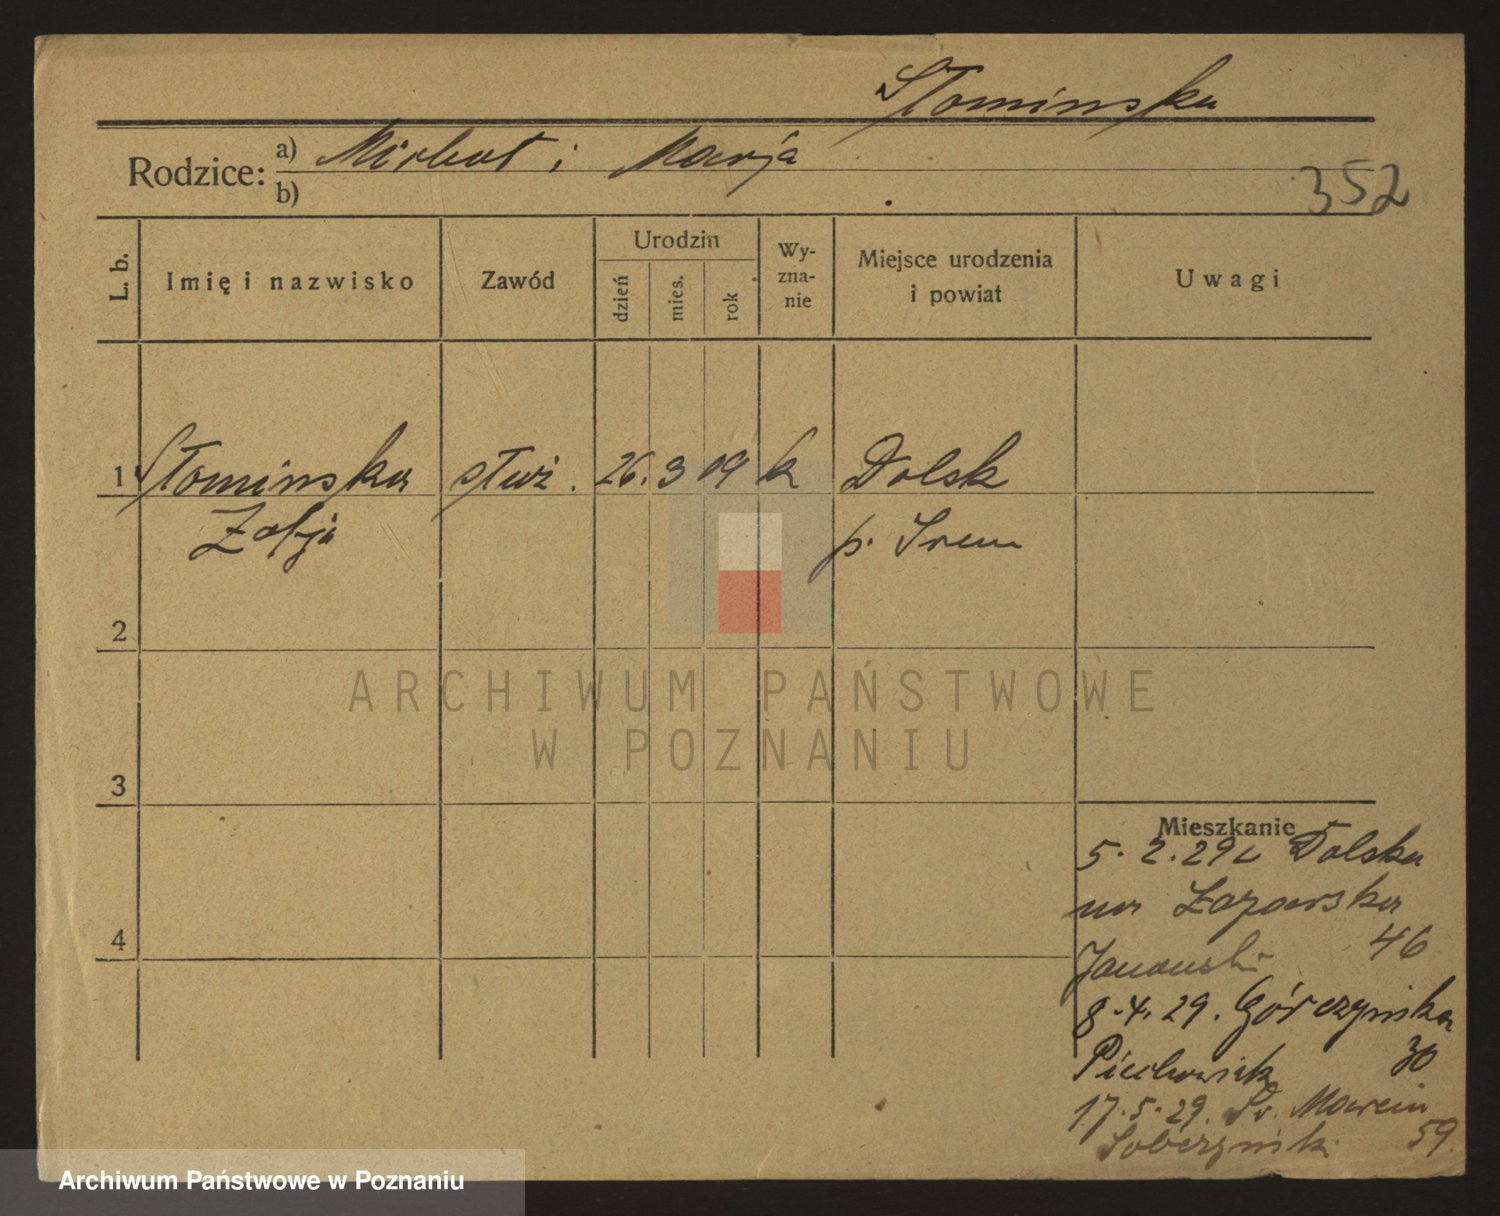 Słominska
Rodzice: a) Michał i Marja
b)
352
L. b.
Imię i nazwisko
Zawód
Urodzin
dzień
mies.
rok
Wy-
zna-
nie
Miejsce urodzenia
i powiat
Uwagi
1 Słominska służ. 26. 3 09 k Dolsk
Zofja p. Srem
2
3
4
Mieszkanie
5. 2. 29 z Dolska
na Łazarska
46
8. 4. 29. Górczynska
30
17. 5. 29. Św. Marcin
59.
ARCHIWUM PAŃSTWOWE
W POZNANIU
Archiwum Państwowe w Poznaniu